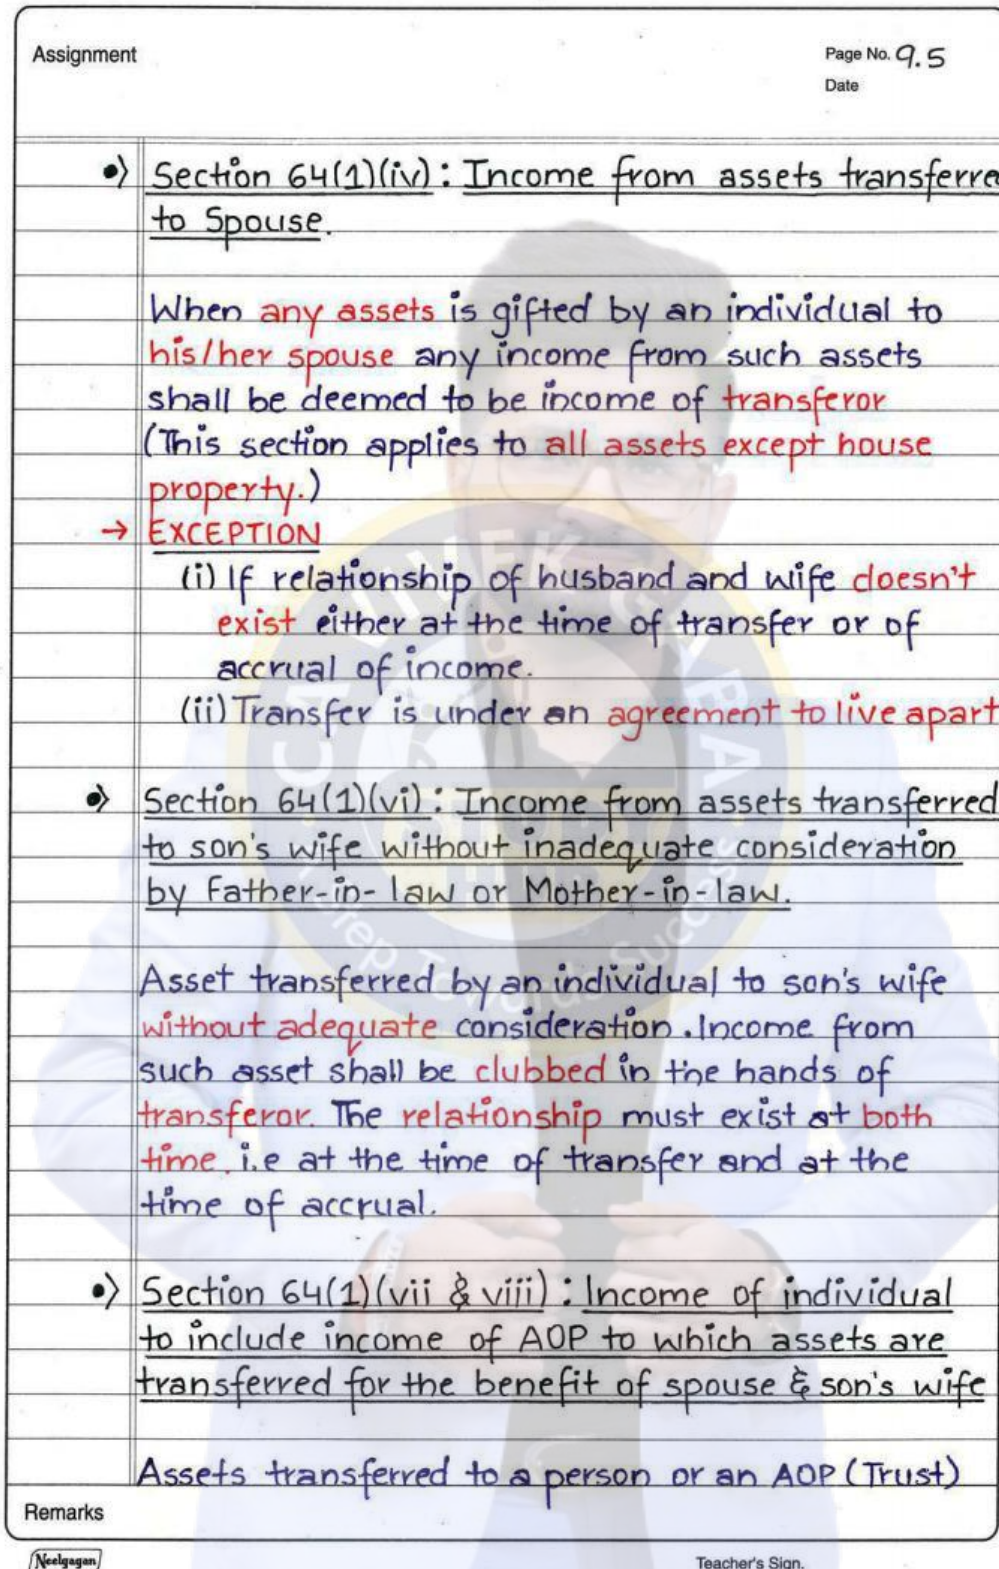 Assignment
Page No. 9.5
Date
•) Section 64(1)(iv) : Income from assets transferre
to Spouse.
When any assets is gifted by an individual to
his/her spouse any income from such assets
shall be deemed to be income of transferor
(This section applies to all assets except house
property.)
→ EXCEPTION
(i) If relationship of husband and wife doesn't
exist either at the time of transfer or of
accrual of income.
(ii) Transfer is under an agreement to live apart
•) Section 64(1)(vi) : Income from assets transferred
to son's wife without inadequate consideration
by Father-in-law or Mother-in-law.
Asset transferred by an individual to son's wife
without adequate consideration. Income from
such asset shall be clubbed in the hands of
transferor. The relationship must exist at both
time. i.e at the time of transfer and at the
time of accrual.
•) Section 64(1)(vii & viii) : Income of individual
to include income of AOP to which assets are
transferred for the benefit of spouse & son's wife
Assets transferred to a person or an AOP (Trust)
Remarks
Neelgagan
Teacher's Sign.